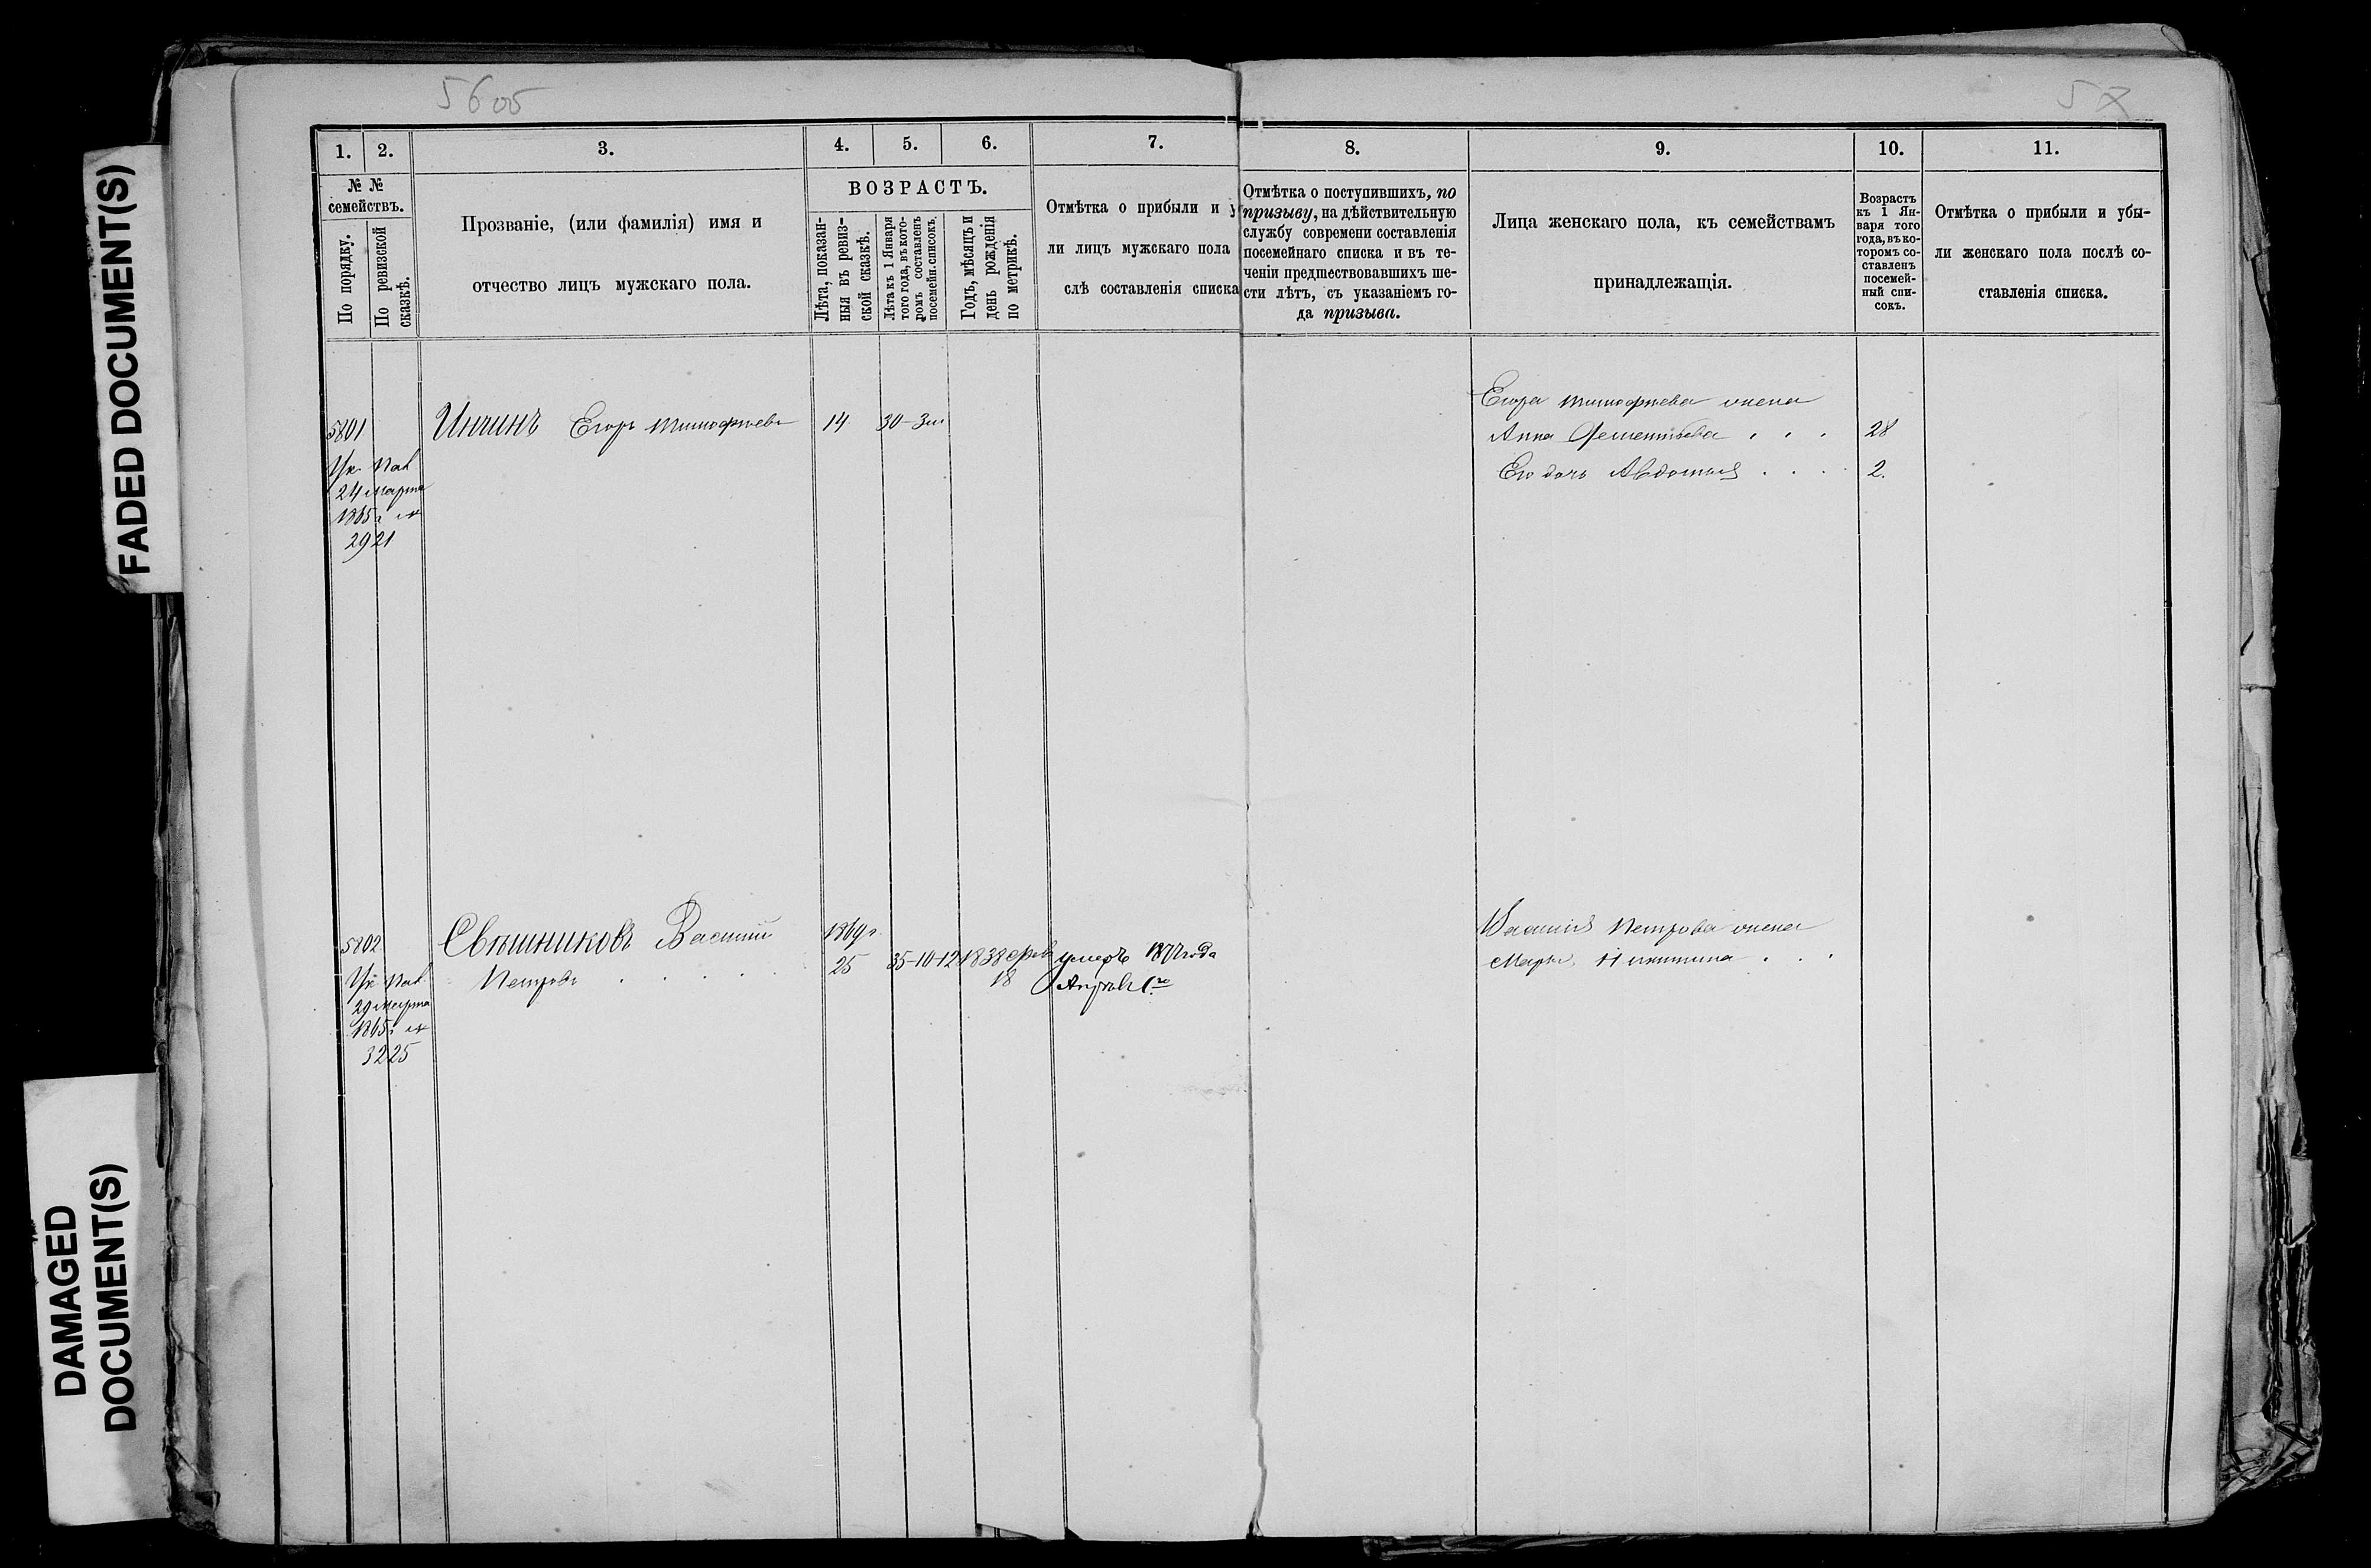 56 об
57
FADED DOCUMENT(S)
DAMAGED
DOCUMENT(S)
1.
2.
3.
4.
5.
6.
7.
8.
9.
10.
11.
№ №
семействъ.
По порядку.
По ревизской
сказкѣ.
Прозваніе, (или фамилія) имя и
отчество лицъ мужскаго пола.
ВОЗРАСТЪ.
Лѣта, показан-
ныя въ ревиз-
ской сказкѣ.
Лѣта къ 1 Января
того года, въ кото-
ромъ составленъ
посемейн. списокъ.
Годъ, мѣсяцъ и
день рожденія
по метрикѣ.
Отмѣтка о прибыли и у
ли лицъ мужскаго пола
слѣ составленія списка
Отмѣтка о поступившихъ, по
призыву, на дѣйствительную
службу современи составленія
посемейнаго списка и въ те-
ченіи предшествовавшихъ ше-
сти лѣтъ, съ указаніемъ го-
да призыва.
Лица женскаго пола, къ семействамъ
принадлежащія.
Возрастъ
къ 1 Ян-
варя того
года, въ ко-
торомъ со-
ставленъ
посемей-
ный спи-
сокъ.
Отмѣтка о прибыли и убы-
ли женскаго пола послѣ со-
ставленія списка.
5801
Ук. Пал
24 марта
1865 г. №
2921
Инчинъ Егоръ Тимофѣевъ
14
30-3м
Егора Тимофѣева жена
Анна Дементьева
28
Его дочь Авдотья
2.
5802
Ук Пал
29 марта
1865 г №
3225
Свѣшниковъ Василій
Петровъ
1869 г.
25
35-10-12
1838 Фев
18
умеръ 1877 года
Апрѣля 1го
Василія Петрова жена
Марья Никитина